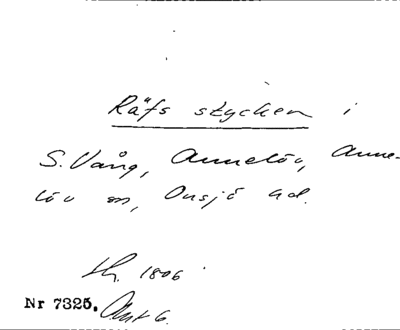 Räfs stycken i
S. Vång, Annelöv, Anne-
löv sn, Onsjö hd.
1806
Nr 7325. Akt 6.